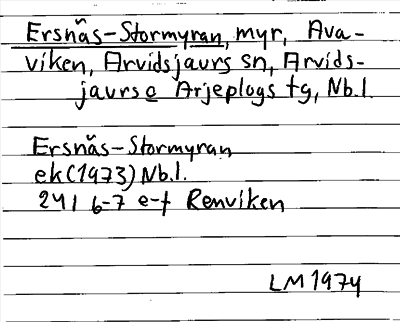 Ersnäs-Stormyran, myr, Ava-
viken, Arvidsjaurs sn, Arvids-
jaurs o Arjeplogs tg, Nb.l.
Ersnäs-Stormyran
ek (1973) Nb.l.
24I 6-7 e-f Renviken
LM 1974